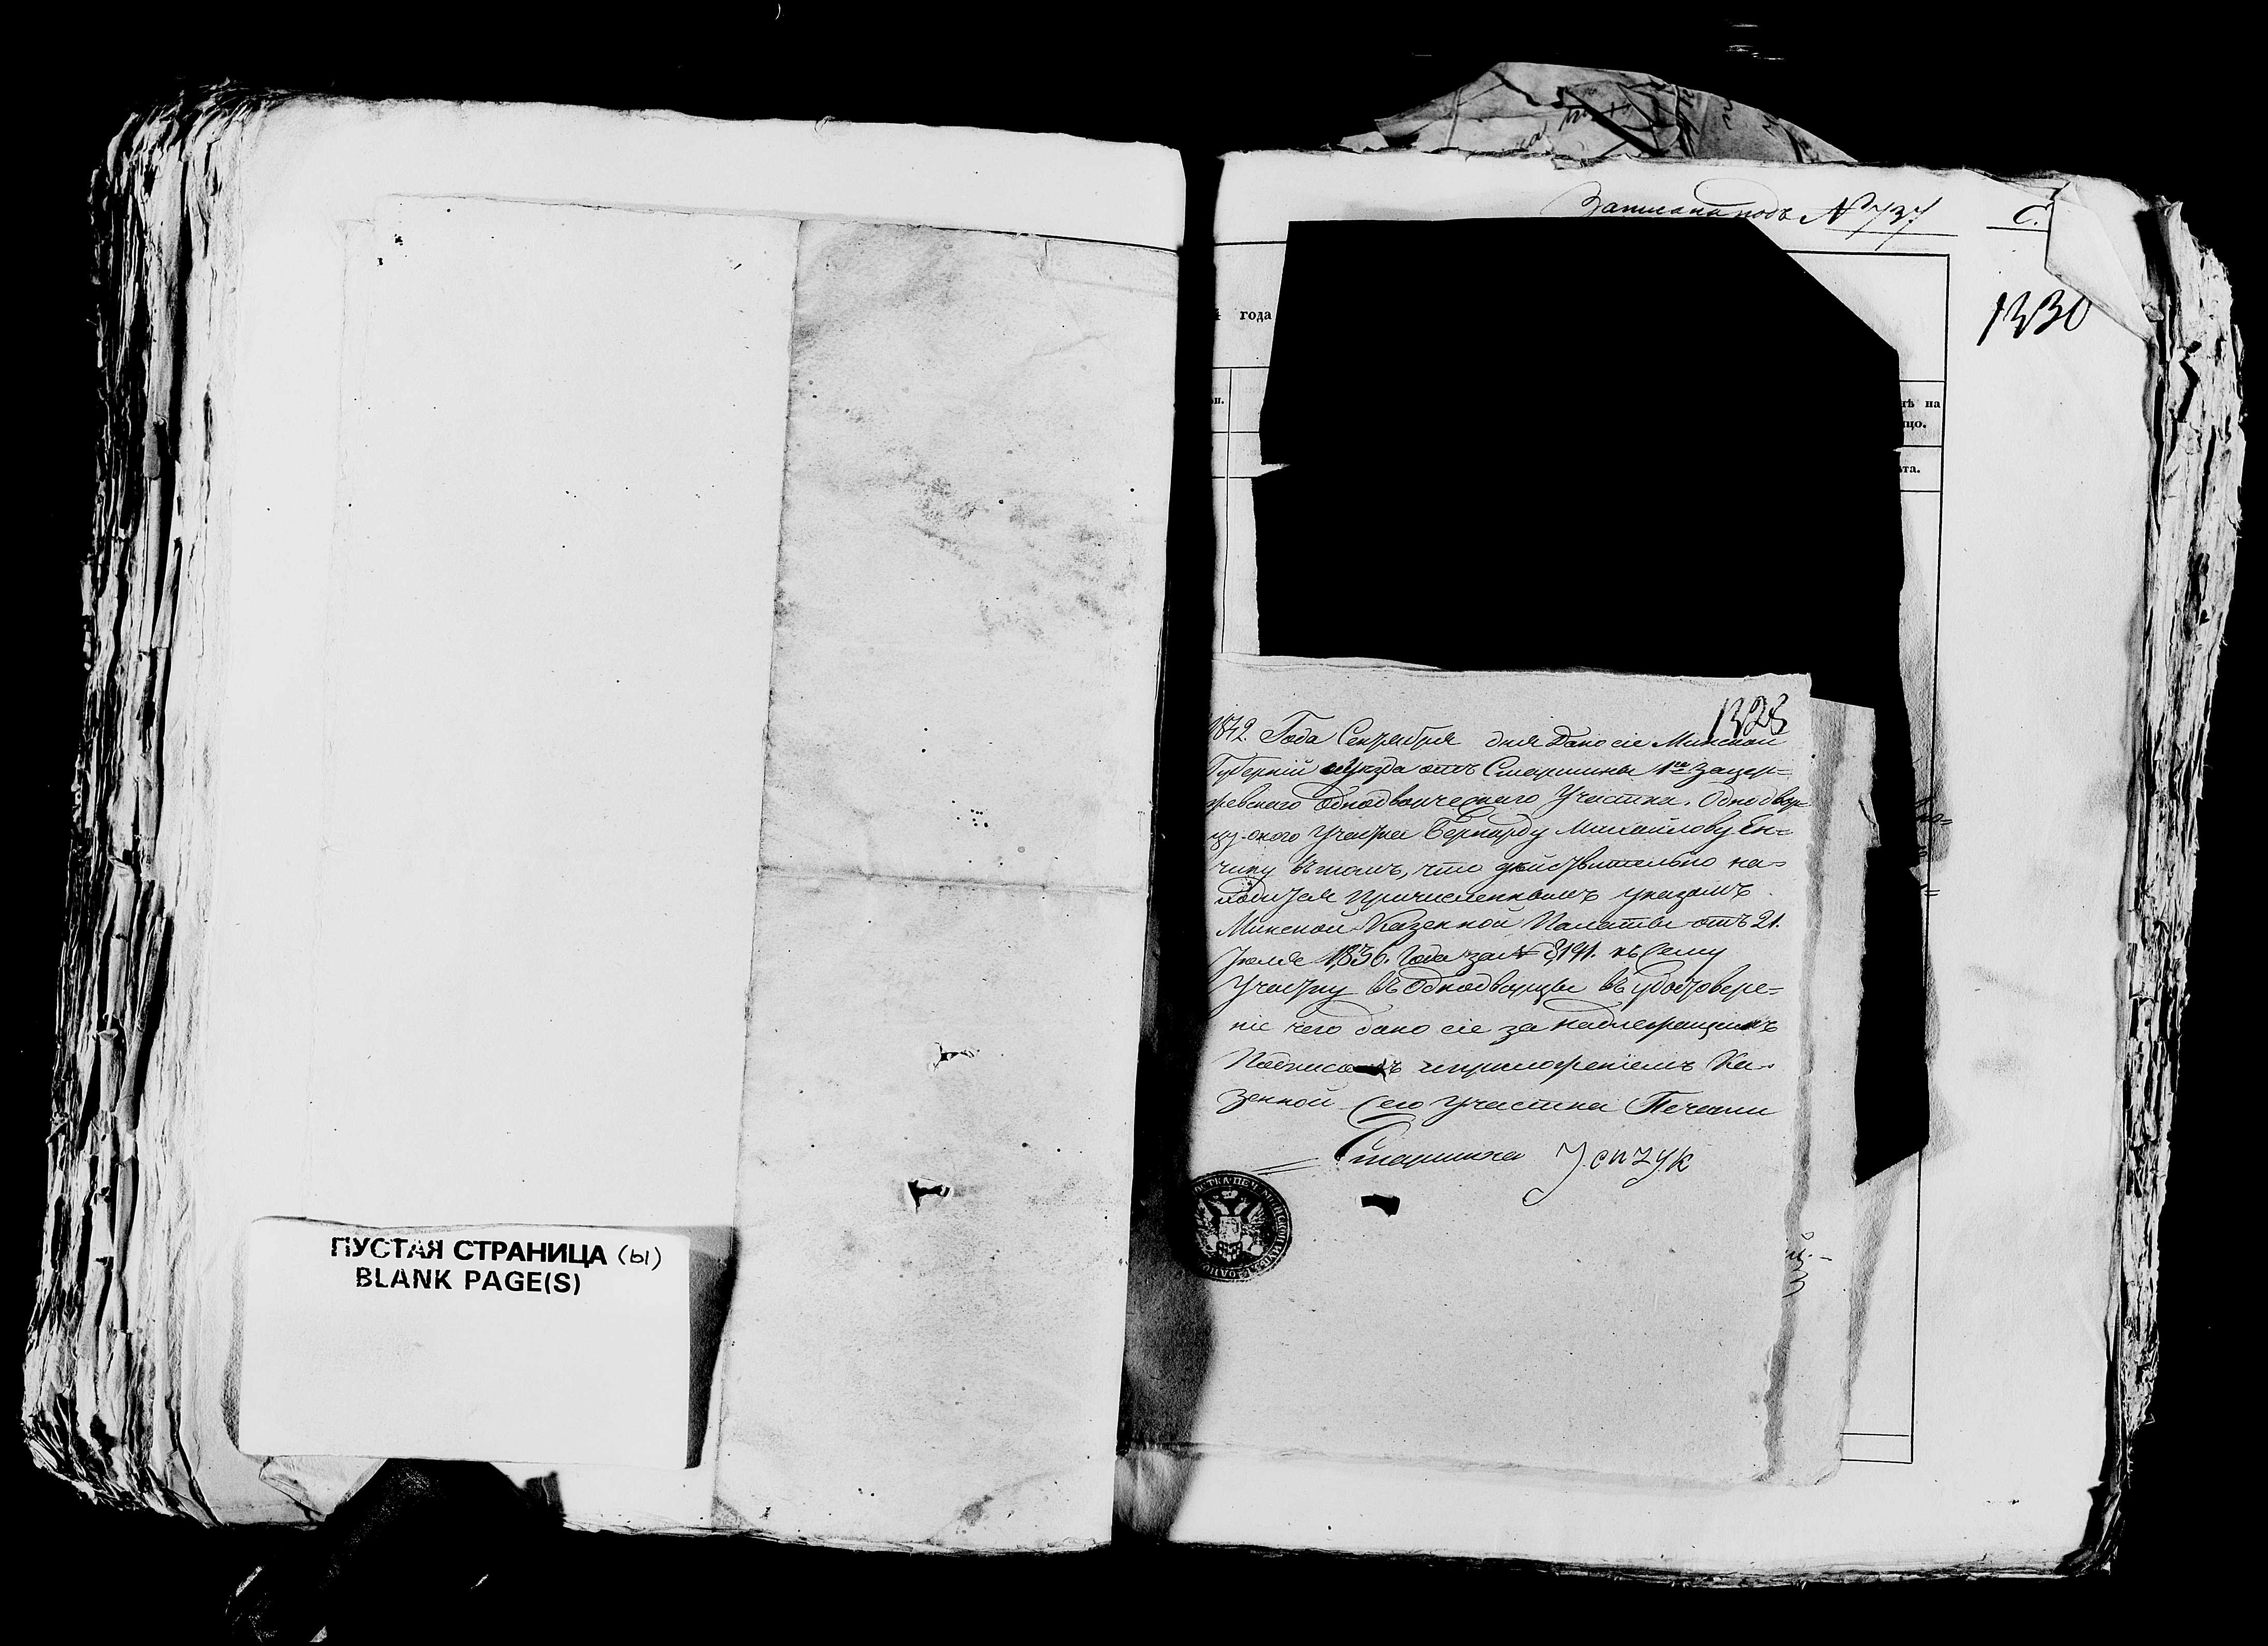 Записана подъ № 737
С.
1330
года
тѣ на
цо.
та.
1328
1842. Года Сентября дня Дано сіе Минской
Губерніи и Уѣзда отъ Старшины 1го Зацер=
Однодворческаго Участка. Однодвор=
цу оного Участка Бернарду Михайлову Ен=
чику въ томъ, что дѣйствительно на=
ходится причисленнымъ указомъ
Минской Казенной Палаты отъ 21.
Іюля 1836. Года за № 8191. къ сему
Участку въ Однодворцы въ удостовере=
ніе чего дано сіе за надлежащимъ
Подписомъ и приложеніемъ Ка=
зенной сего Участка Печати
Старшина
ПУСТАЯ СТРАНИЦА (ы)
BLANK PAGE(S)